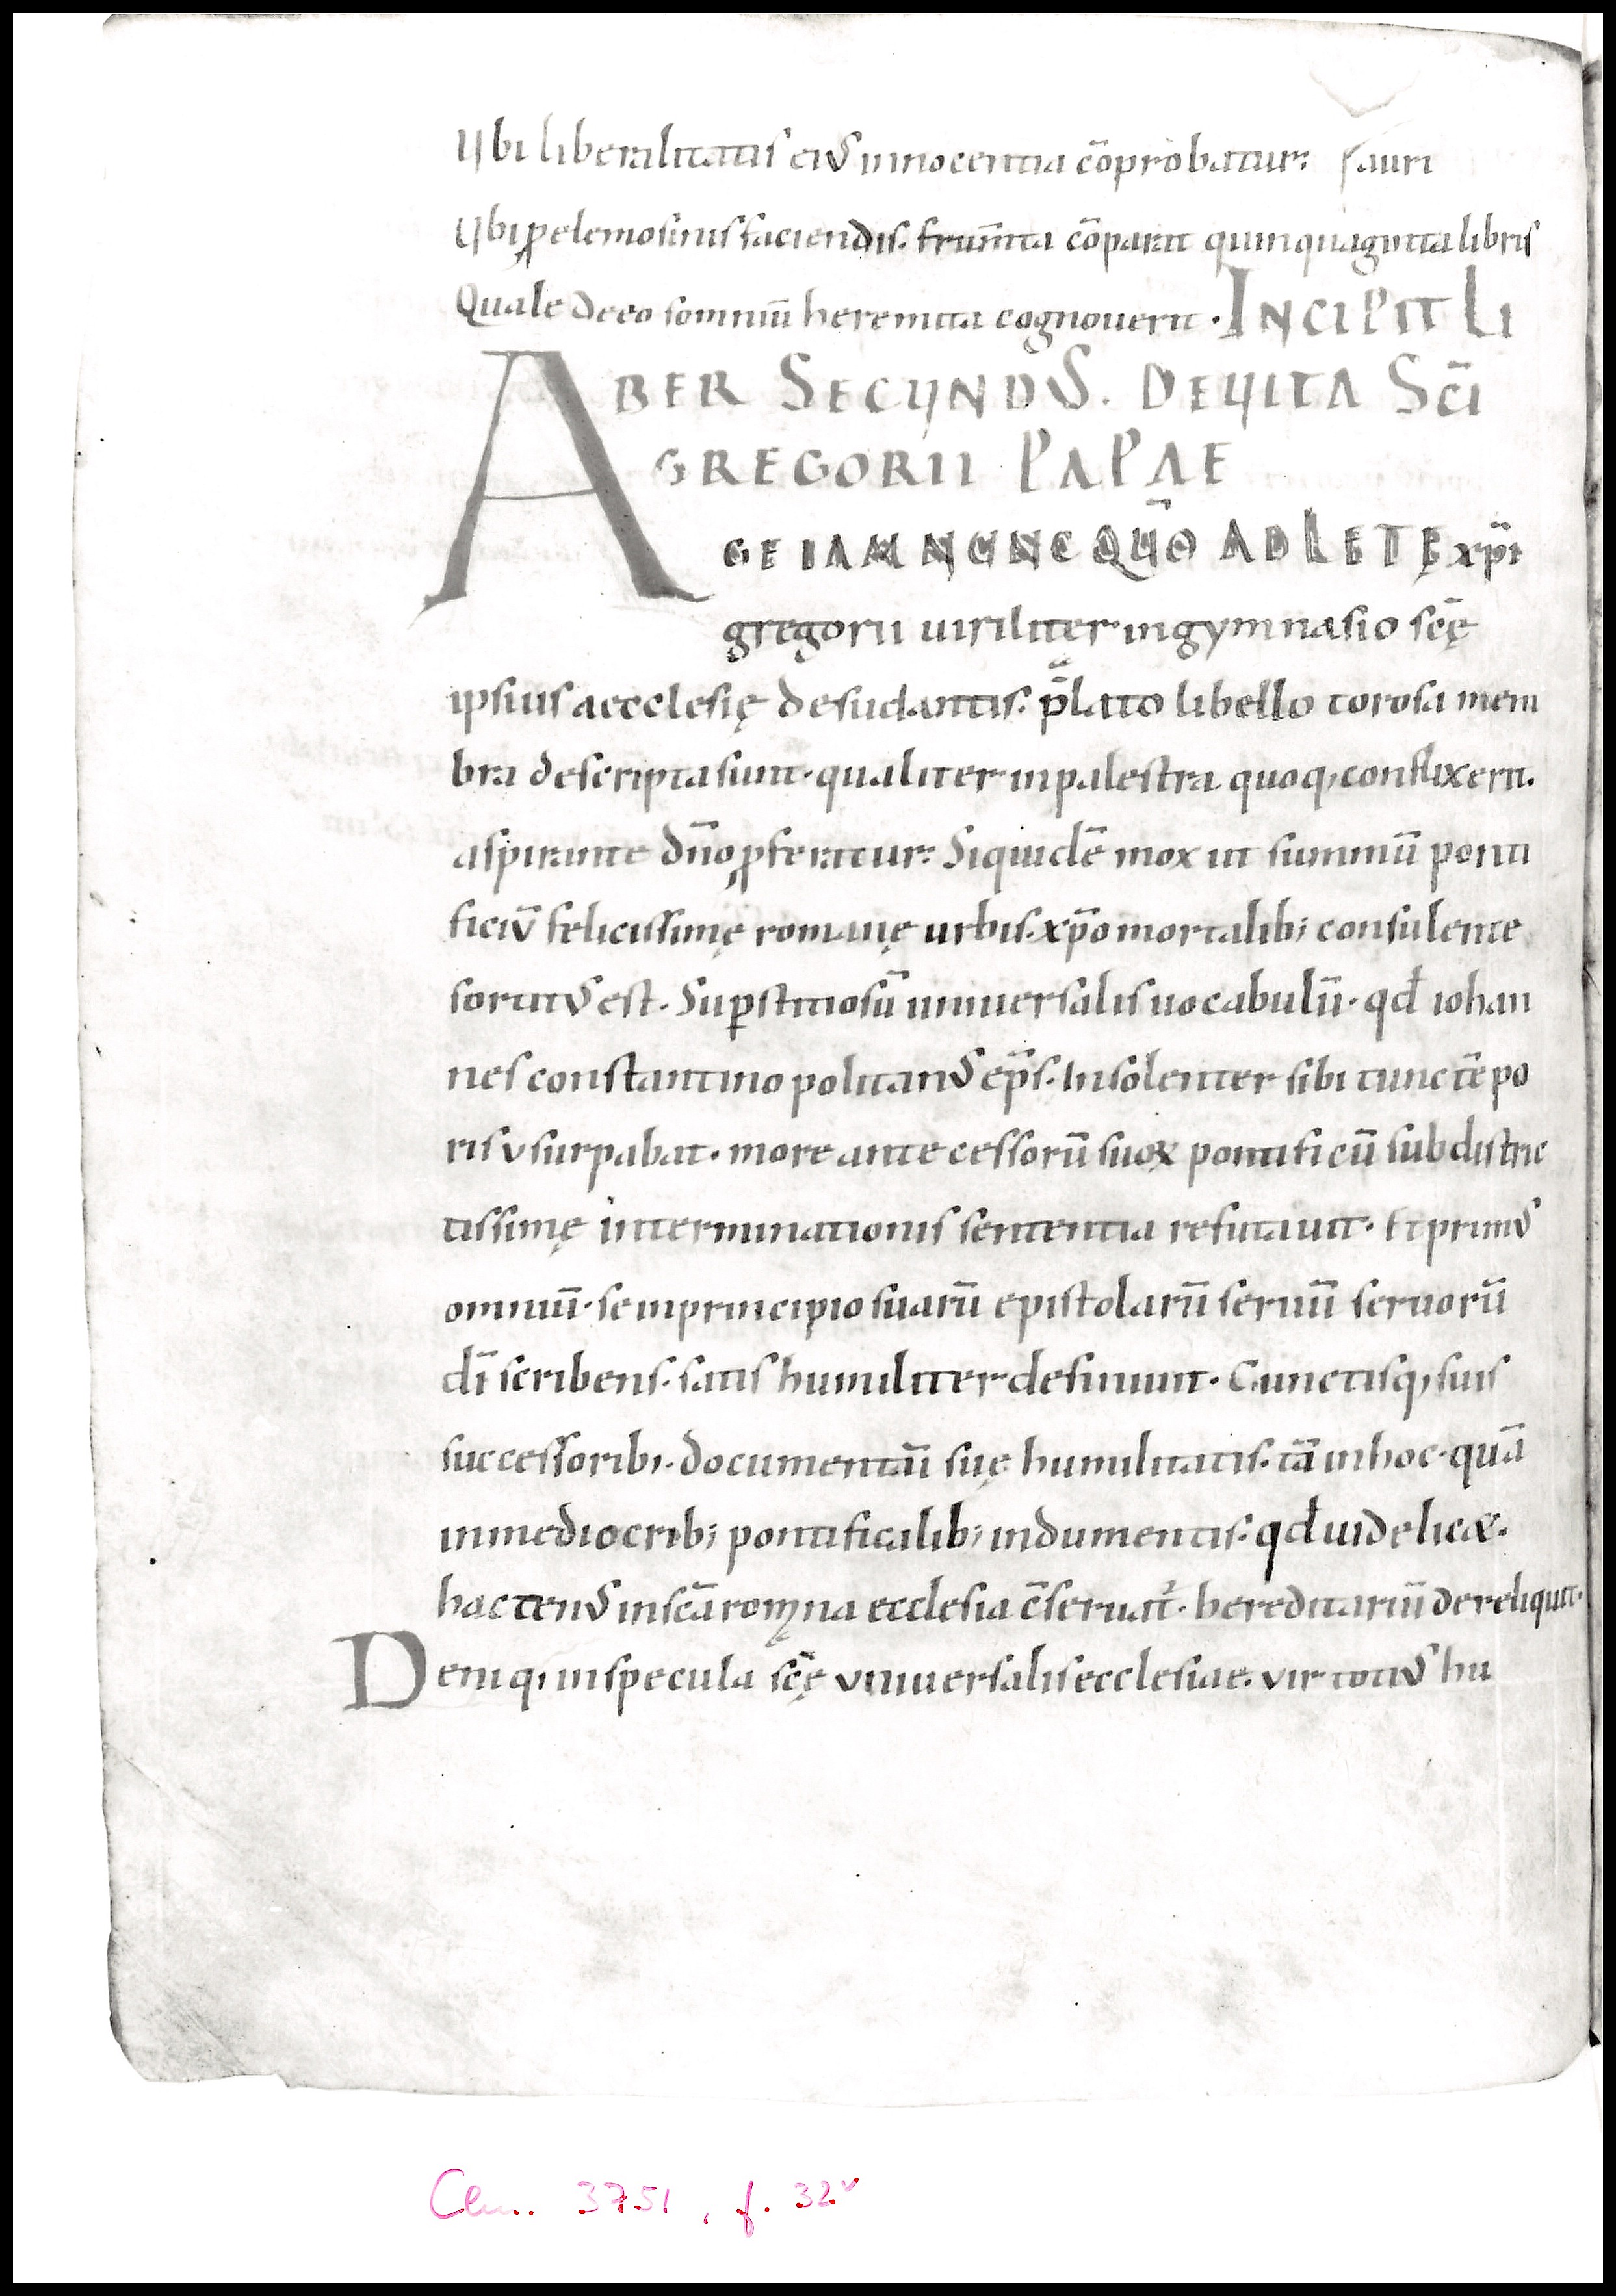 Ubi liberalitatis eiuſ innocentia cōprobatur· ſauri
Ubi ꝓ elemosinis faciendis· frum̄ta cōparat quinquaginta libris
Quale de eo somniū heremita cognouerit· INCIPIT LI
BER SECUNDUS. DE UITA SC̄I
GREGORII PAPAE
AGE IAM NUNC QUŌ ADLETĘ xp̄i
gregorii uiriliter in gymnasio sc̄ę
ipsius aecclesię desudantis· p̄lato libello torosa mem
bra descripta sunt· qualiter in palestra quoq; conflixerit.
aspirante dn̄o ꝓferatur· Siquidē mox ut summū ponti
ficiū felicissimę romanę urbis· xp̄o mortalib; consulente
sortitus est· Suꝑstitiosū uniuersalis uocabulū· qđ iohan
nes constantinopolitanus ep̄s· Insolenter sibi tunc tēpo
ris vsurpabat· more antecessorū suoꝝ pontificū sub distric
tissimę interminationis sententia refutauit· Et primus
omniū· se in principio suarū epistolarū seruū seruorū
dī scribens· satis humiliter definiuit· Cunctisq; suis
successorib;· documentū suę humilitatis· tā in hoc· quā
in mediocrib; pontificalib; indumentis· qđ uidelicet·
hactenus in sc̄a romana ecclesia c̄seruat̄· hereditariū dereliquit·
Deniq; in specula sc̄ę vniuersalis ecclesiae· vir totius hu
Clm. 3751, f. 32v